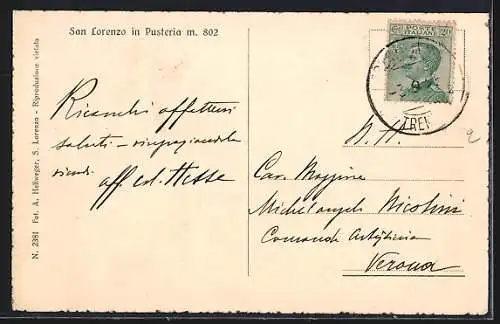 San Lorenzo in Pusteria m. 802
N. 2381 Fot. A. Hellweger, S. Lorenzo - Riproduzione vietata
Ricambi affettuosi
saluti - ringraziandola
aff. Hesse
POSTE
ITALIANE
20
(TREN
N. H.
Cav. Maggiore
Michelangelo Nicolini
Comando Artiglieria
Verona